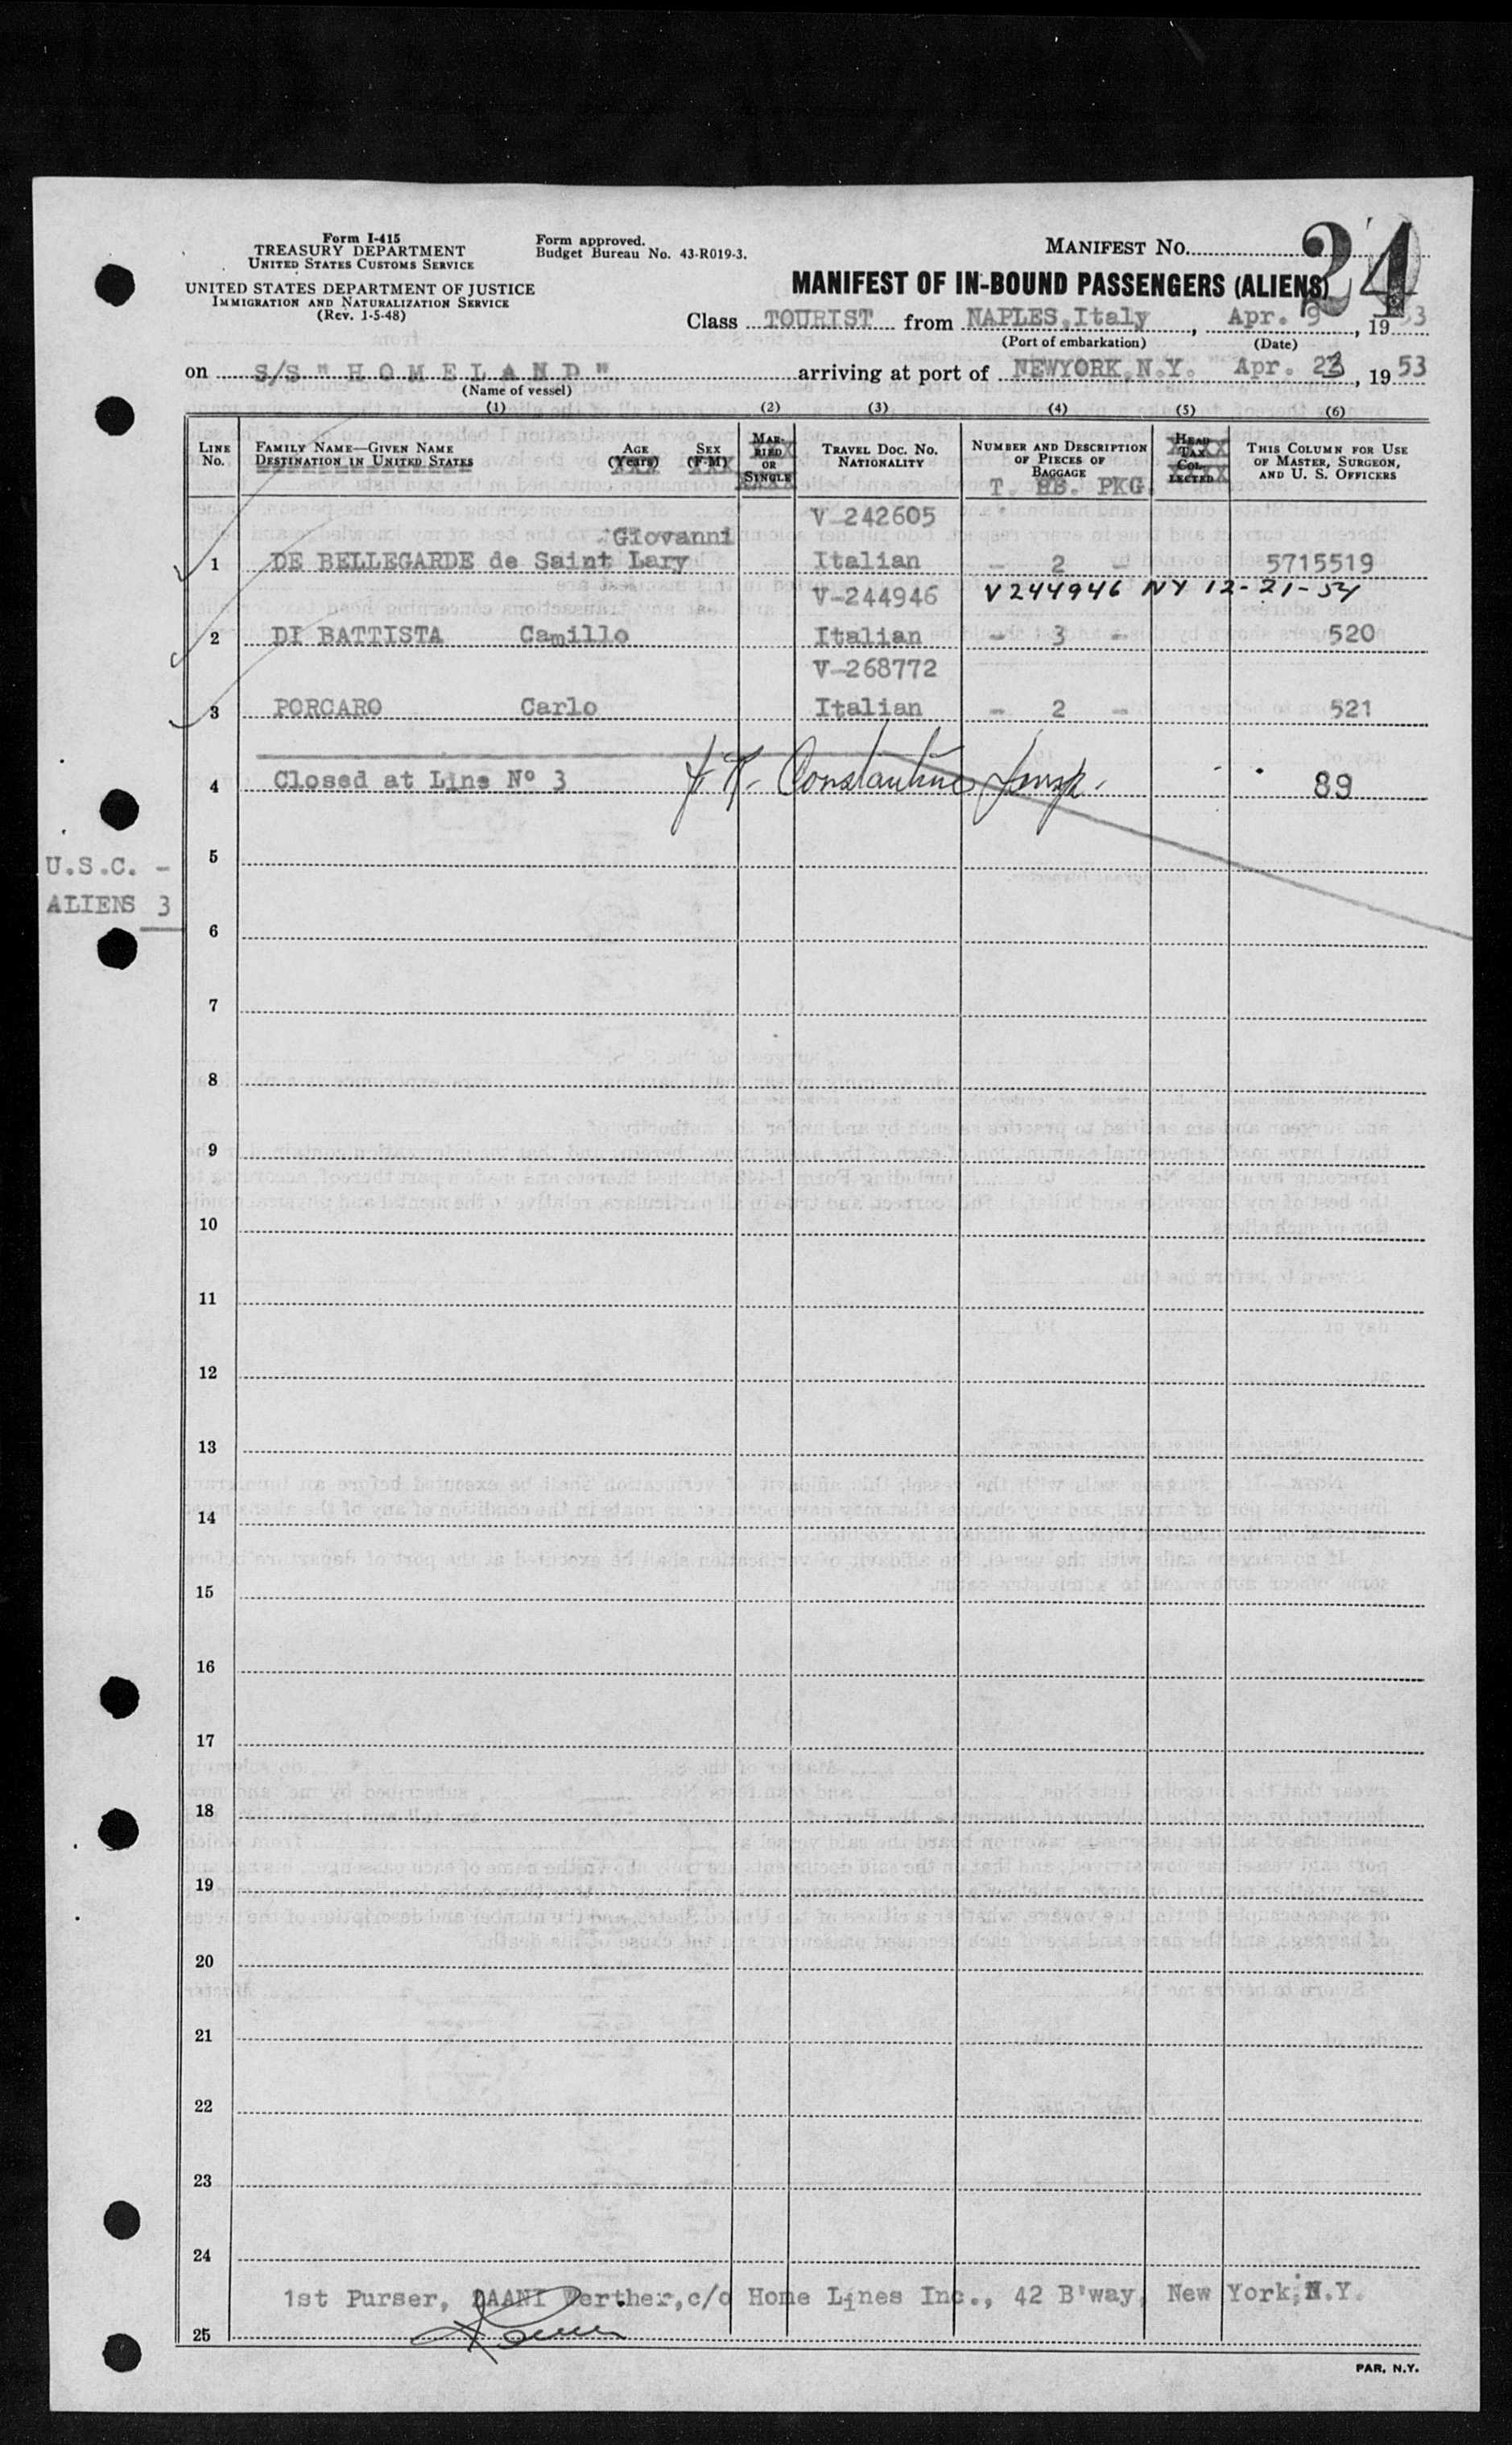 Form I-415
TREASURY DEPARTMENT
UNITED STATES CUSTOMS SERVICE
UNITED STATES DEPARTMENT OF JUSTICE
IMMIGRATION AND NATURALIZATION SERVICE
(Rev. 1-5-48)
Form approved.
Budget Bureau No. 43-R019-3.
MANIFEST NO. 24
MANIFEST OF IN-BOUND PASSENGERS (ALIENS)
Class TOURIST from NAPLES,Italy, Apr. 9, 1953
(Port of embarkation) (Date)
on S/S "HOMELAND" arriving at port of NEWYORK,N.Y. Apr. 23, 1953
(Name of vessel)
(1) (2) (3) (4) (5) (6)
LINE No. FAMILY NAME—GIVEN NAME DESTINATION IN UNITED STATES AGE (Years) SEX (F-M) MARRIED OR SINGLE TRAVEL DOC. NO. NATIONALITY NUMBER AND DESCRIPTION OF PIECES OF BAGGAGE HEAD TAX COLLECTED THIS COLUMN FOR USE OF MASTER, SURGEON, AND U. S. OFFICERS
T. HB. PKG.
Giovanni V-242605
1 DE BELLEGARDE de Saint Lary Italian - 2 - 5715519
V-244946 V244946 NY 12-21-54
2 DI BATTISTA Camillo Italian - 3 - 520
V-268772
3 PORCARO Carlo Italian - 2 - 521
4 Closed at Line Nº 3 Constantine 89
5
U.S.C. -
ALIENS 3
6
7
8
9
10
11
12
13
14
15
16
17
18
19
20
21
22
23
24
1st Purser, DAANI Werther,c/o Home Lines Inc., 42 B'way, New York,N.Y.
25
PAR, N.Y.